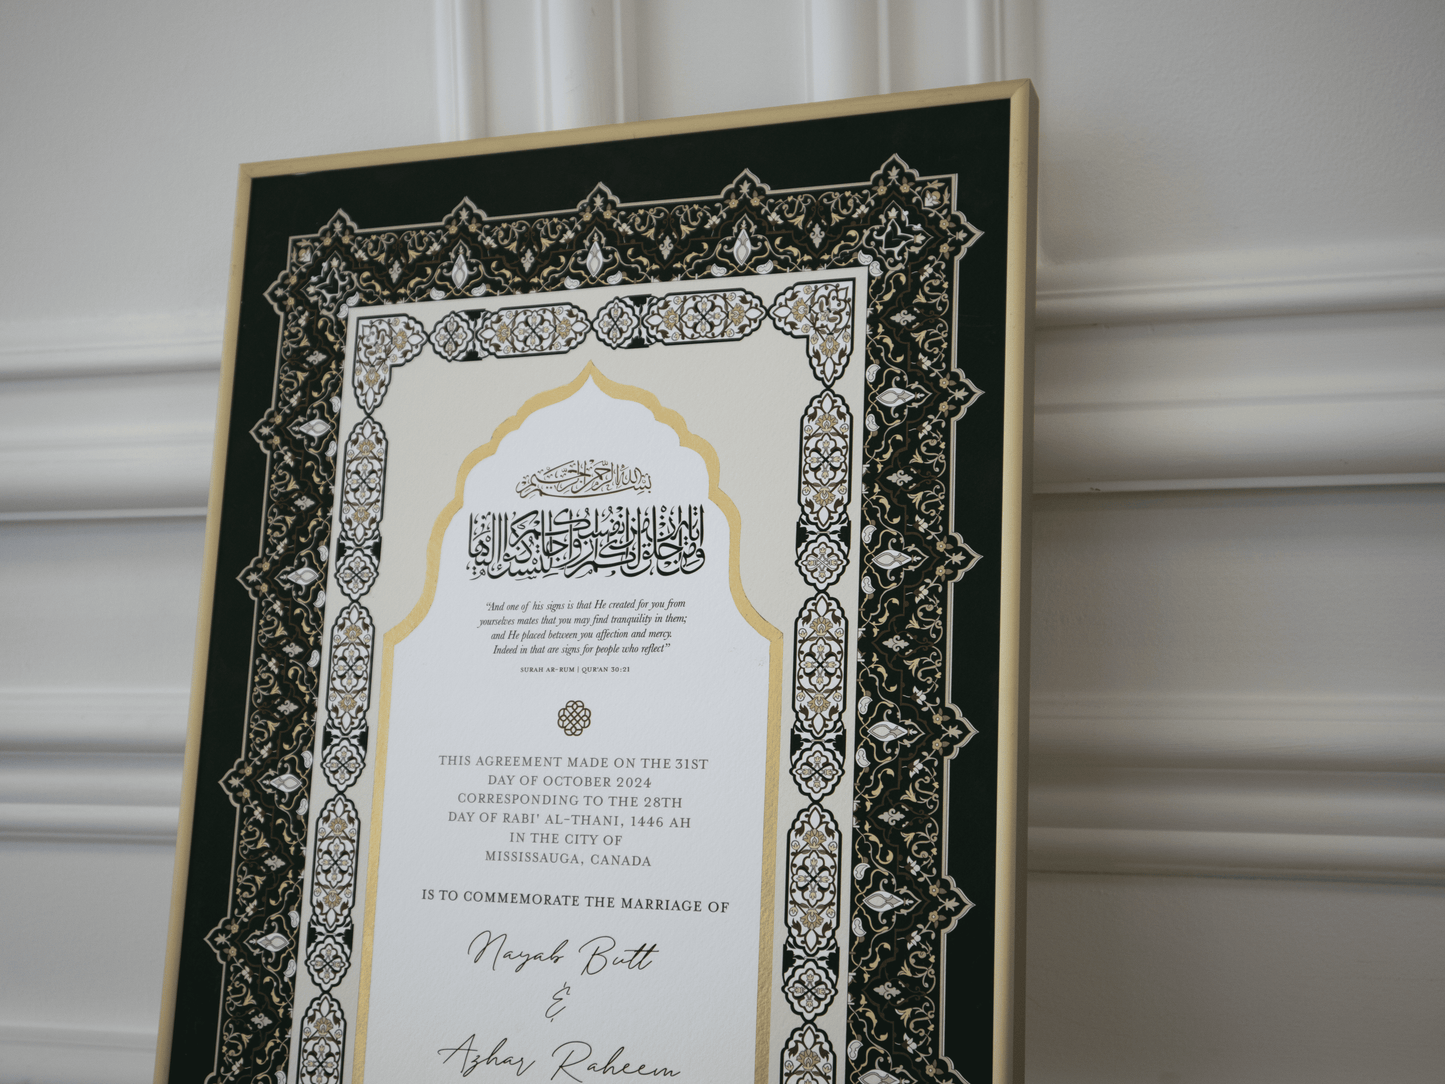 بسم الله الرحمن الرحيم
ومن آياته أن خلق لكم من أنفسكم أزواجا لتسكنوا إليها
“And one of his signs is that He created for you from
yourselves mates that you may find tranquility in them;
and He placed between you affection and mercy.
Indeed in that are signs for people who reflect”
SURAH AR-RUM | QUR'AN 30:21
THIS AGREEMENT MADE ON THE 31ST
DAY OF OCTOBER 2024
CORRESPONDING TO THE 28TH
DAY OF RABI' AL-THANI, 1446 AH
IN THE CITY OF
MISSISSAUGA, CANADA
IS TO COMMEMORATE THE MARRIAGE OF
Nayab Butt
&
Azhar Raheem